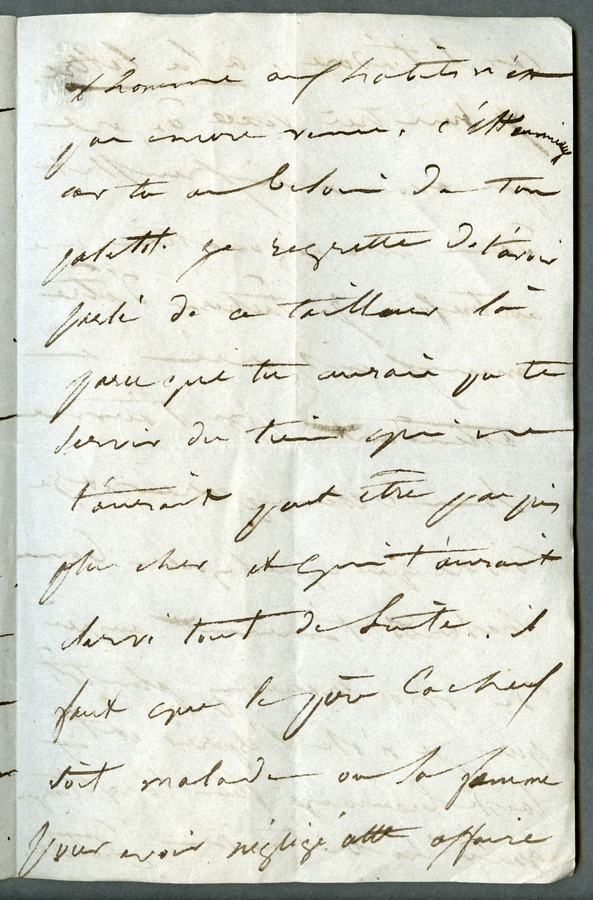 l'homme aux habits n'est
pas encore venu. c'est ennuyeux
car tu as besoin de ton
paletot. je regrette de t'avoir
parlé de ce tailleur là
parce que tu aurais pu te
servir du tien qui ne
t'aurait peut être pas pris
plus cher et qui t'aurait
servi tout de suite. il
faut que le père Cacheux
soit malade ou sa femme
pour avoir négligé cette affaire